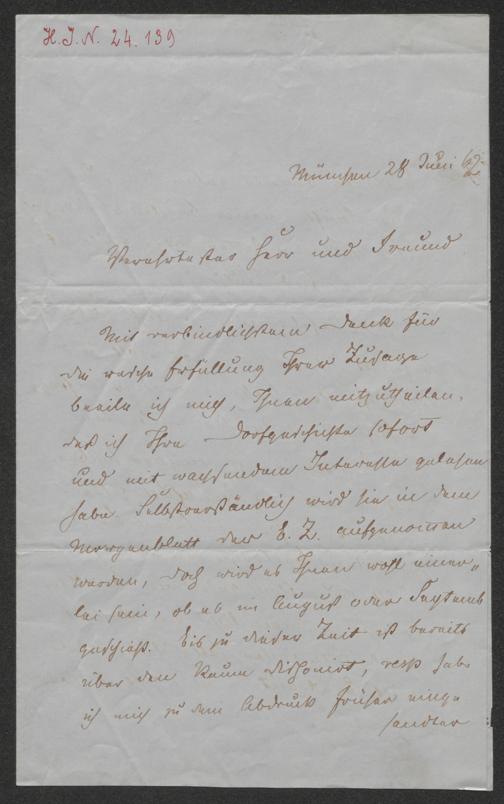 H. I. N. 24.139
München 28 Juni 62
Verehrtester Herr und Freund
Mit verbindlichstem Dank für
die rasche Erfüllung Ihrer Zusage
beeile ich mich, Ihnen mitzutheilen,
daß ich Ihre Dorfgeschichte sofort
und mit wachsendem Interesse gelesen
habe. Selbstverständlich wird sie in dem
Morgenblatt der B. Z. aufgenommen
werden, doch wird es Ihnen wohl einer„
lei sein, ob es im August oder Septemb
geschieht. Bis zu dieser Zeit ist bereits
über den Raum disponirt, resp habe
ich mich zu dem Abdruck früher einge
sandter